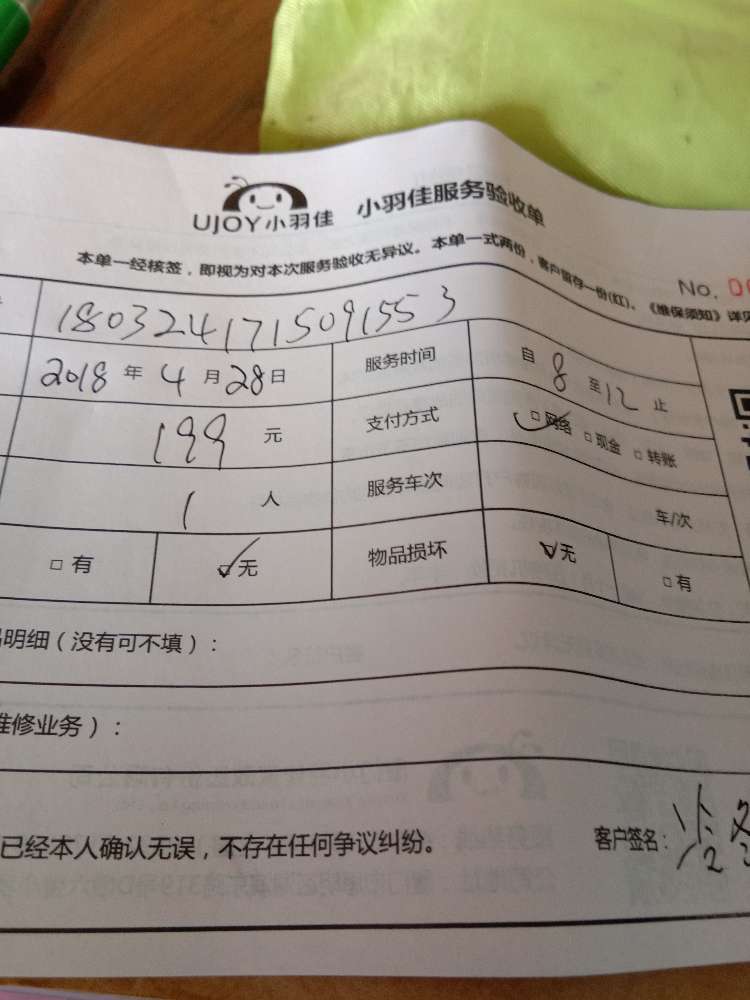 UJOY小羽佳 小羽佳服务验收单
本单一经核签，即视为对本次服务验收无异议。本单一式两份，客户留存一份(红)。《维保须知》详见
No. 0
1803241715091553
2018 年 4 月 28 日 服务时间 自 8 至 12 止
199 元 支付方式 □ 网络 □ 现金 □ 转账
1 人 服务车次 车/次
□ 有 □ 无 物品损坏 □ 无 □ 有
明细（没有可不填）：
维修业务）：
已经本人确认无误，不存在任何争议纠纷。 客户签名：